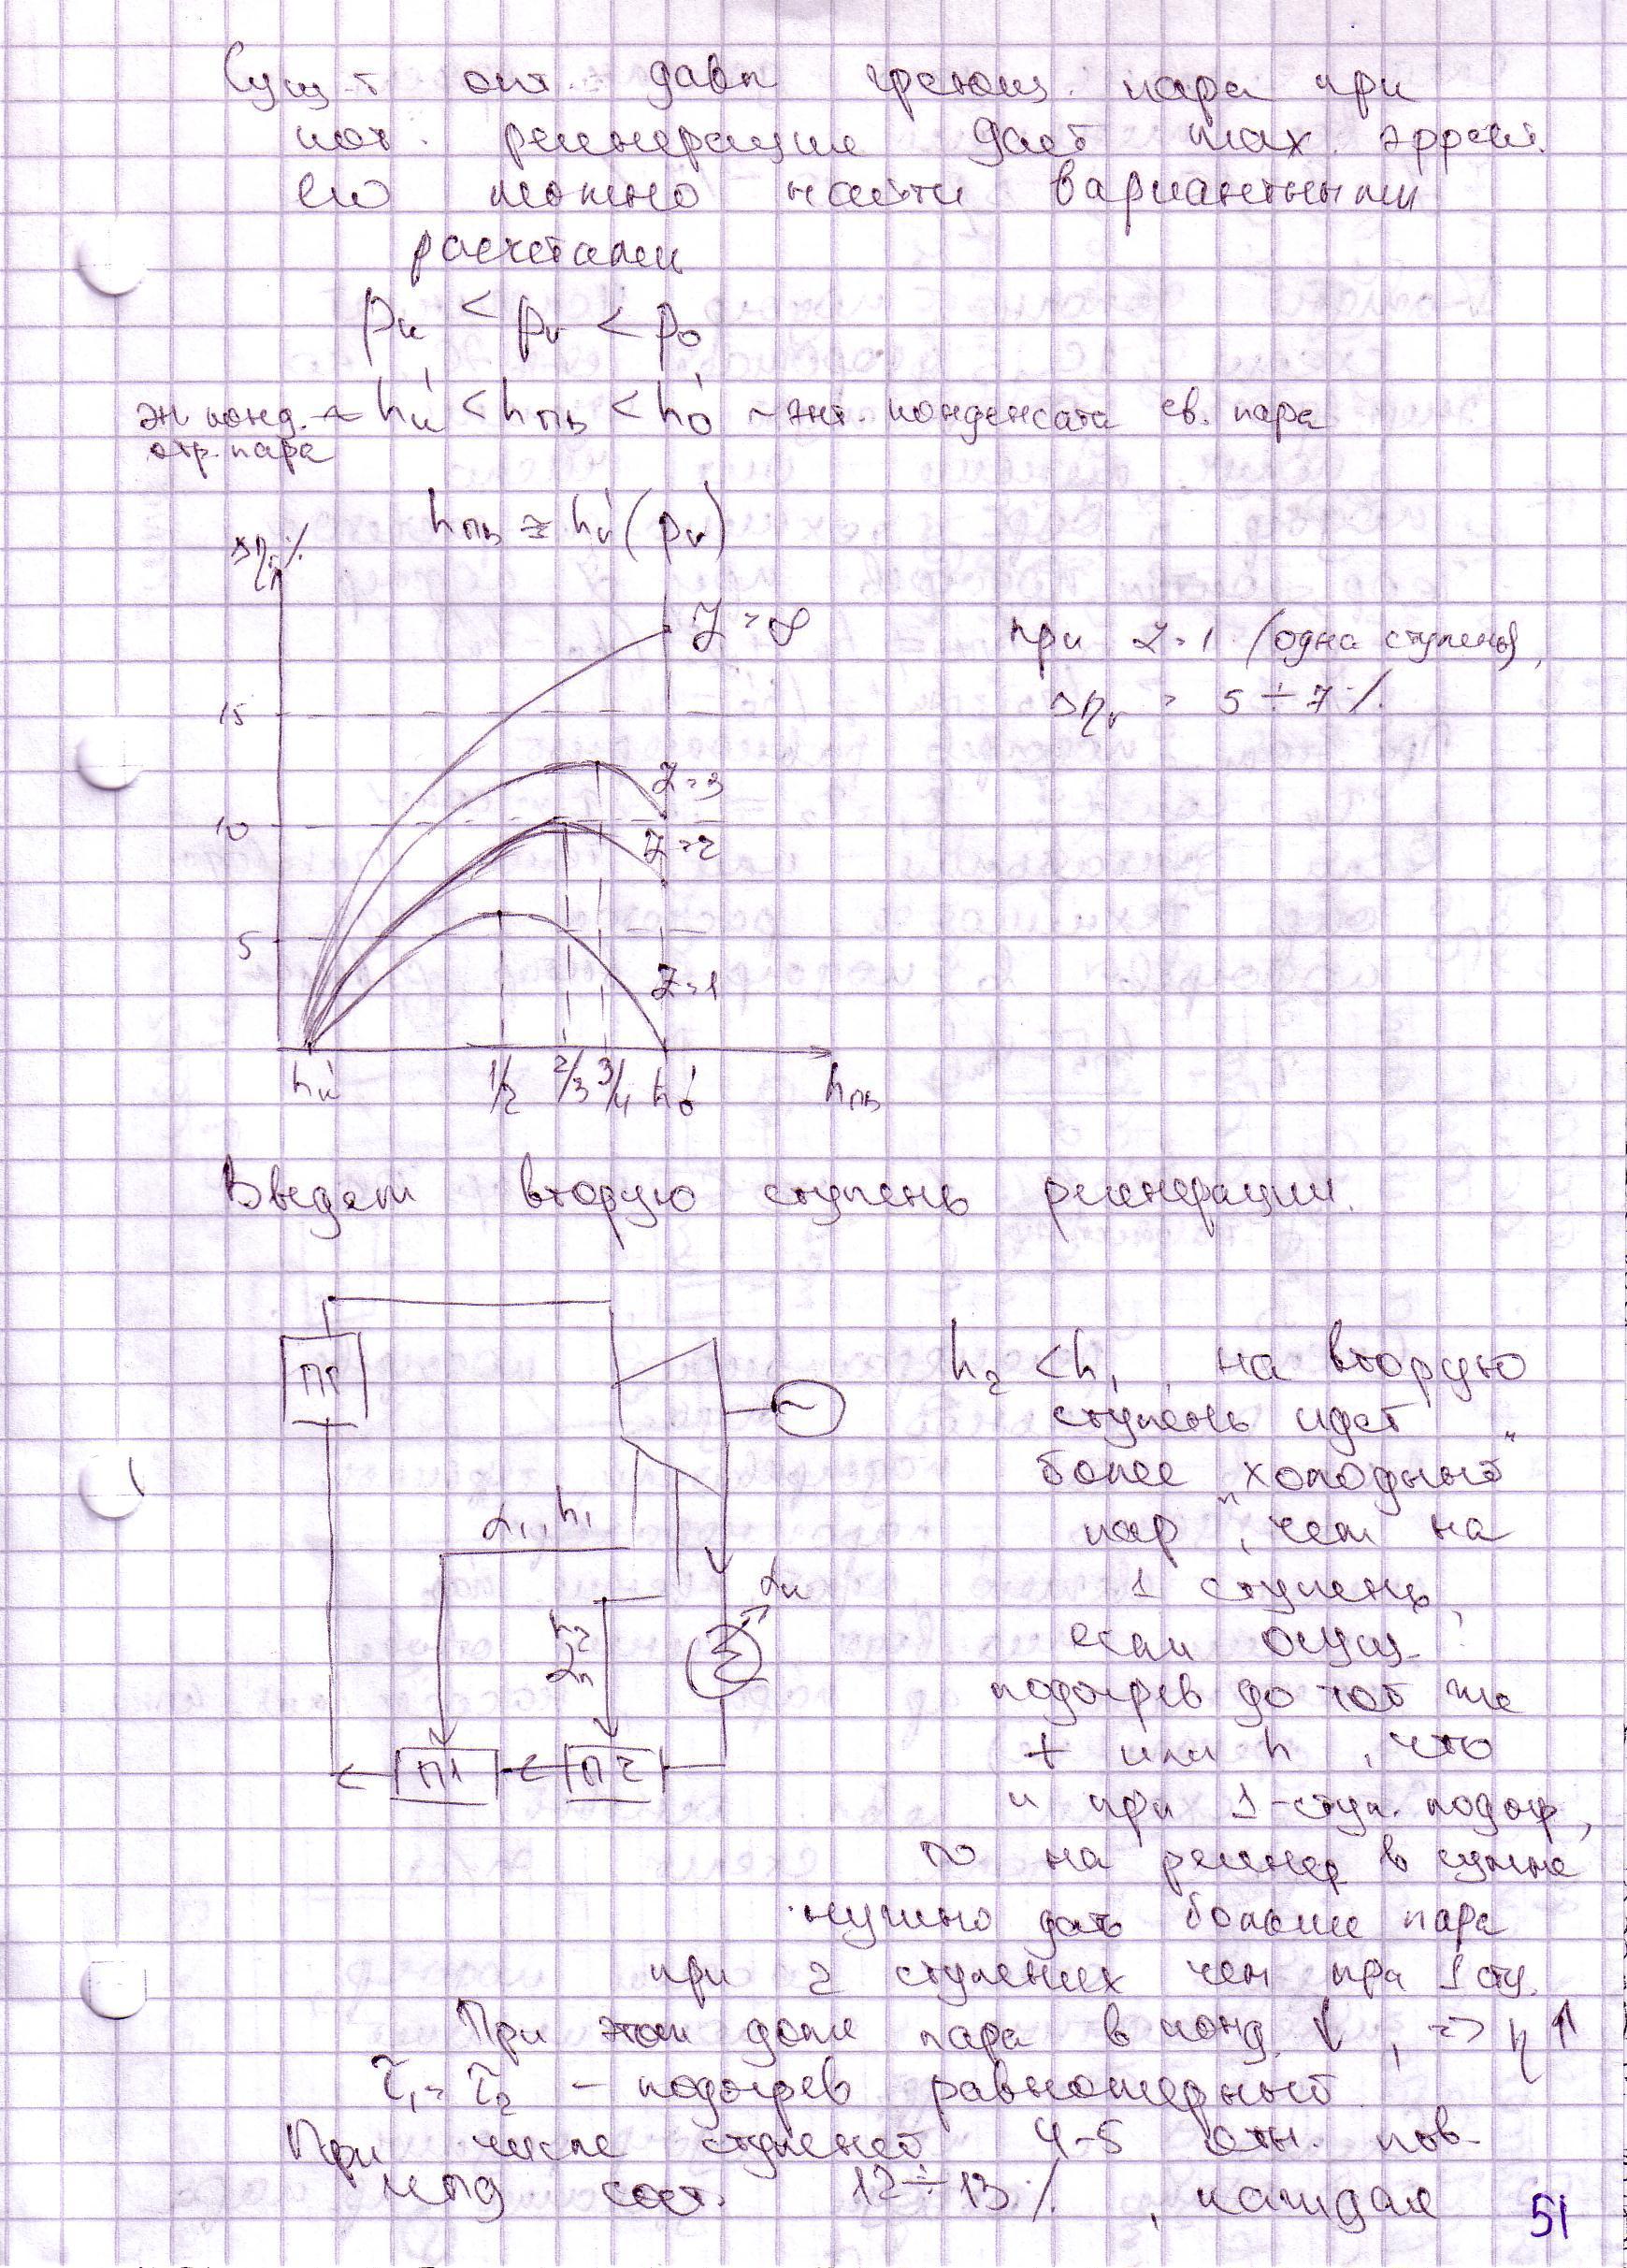 Сущ-т опт. давл греющ. пара при
кот. регенерация дает max. эффект.
его можно найти вариантными
расчетами
pк < pr < p0
эн. конд. ← hк' < hпв < h0' ~ энт. конденсата св. пара
отр. пара
hпв ≈ hr' (pr)
Δηr, %
Z = ∞
при Z = 1 (одна ступень),
Δηr = 5 ÷ 7 %
15
Z = 3
10
Z = 2
5
Z = 1
hк' 1/2 2/3 3/4 h0' hпв
Введем вторую ступень регенерации.
ПГ
~
h2 < h1, на вторую
ступень идет
более "холодный
пар", чем на
1 ступень,
α1, h1
αк
h2
если осущ.
подогрев до той же
t или h, что
П1
П2
и при 1-ступ. подогр,
то на регенер в сумме
нужно дать больше пара
при 2 ступенях чем при 1 сту.
При этом доля пара в конд. ↓, => η ↑
τ1 = τ2 - подогрев равномерный
При числе ступеней 4-5 отн. пов-
КПД сост. 12 ÷ 13 %, каждая
51